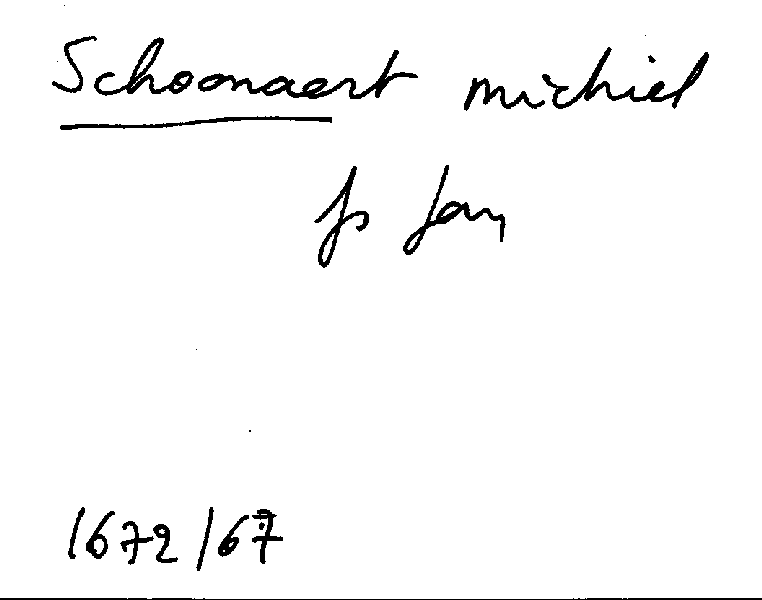 Schoonaert michiel
fs Jan
1672/67